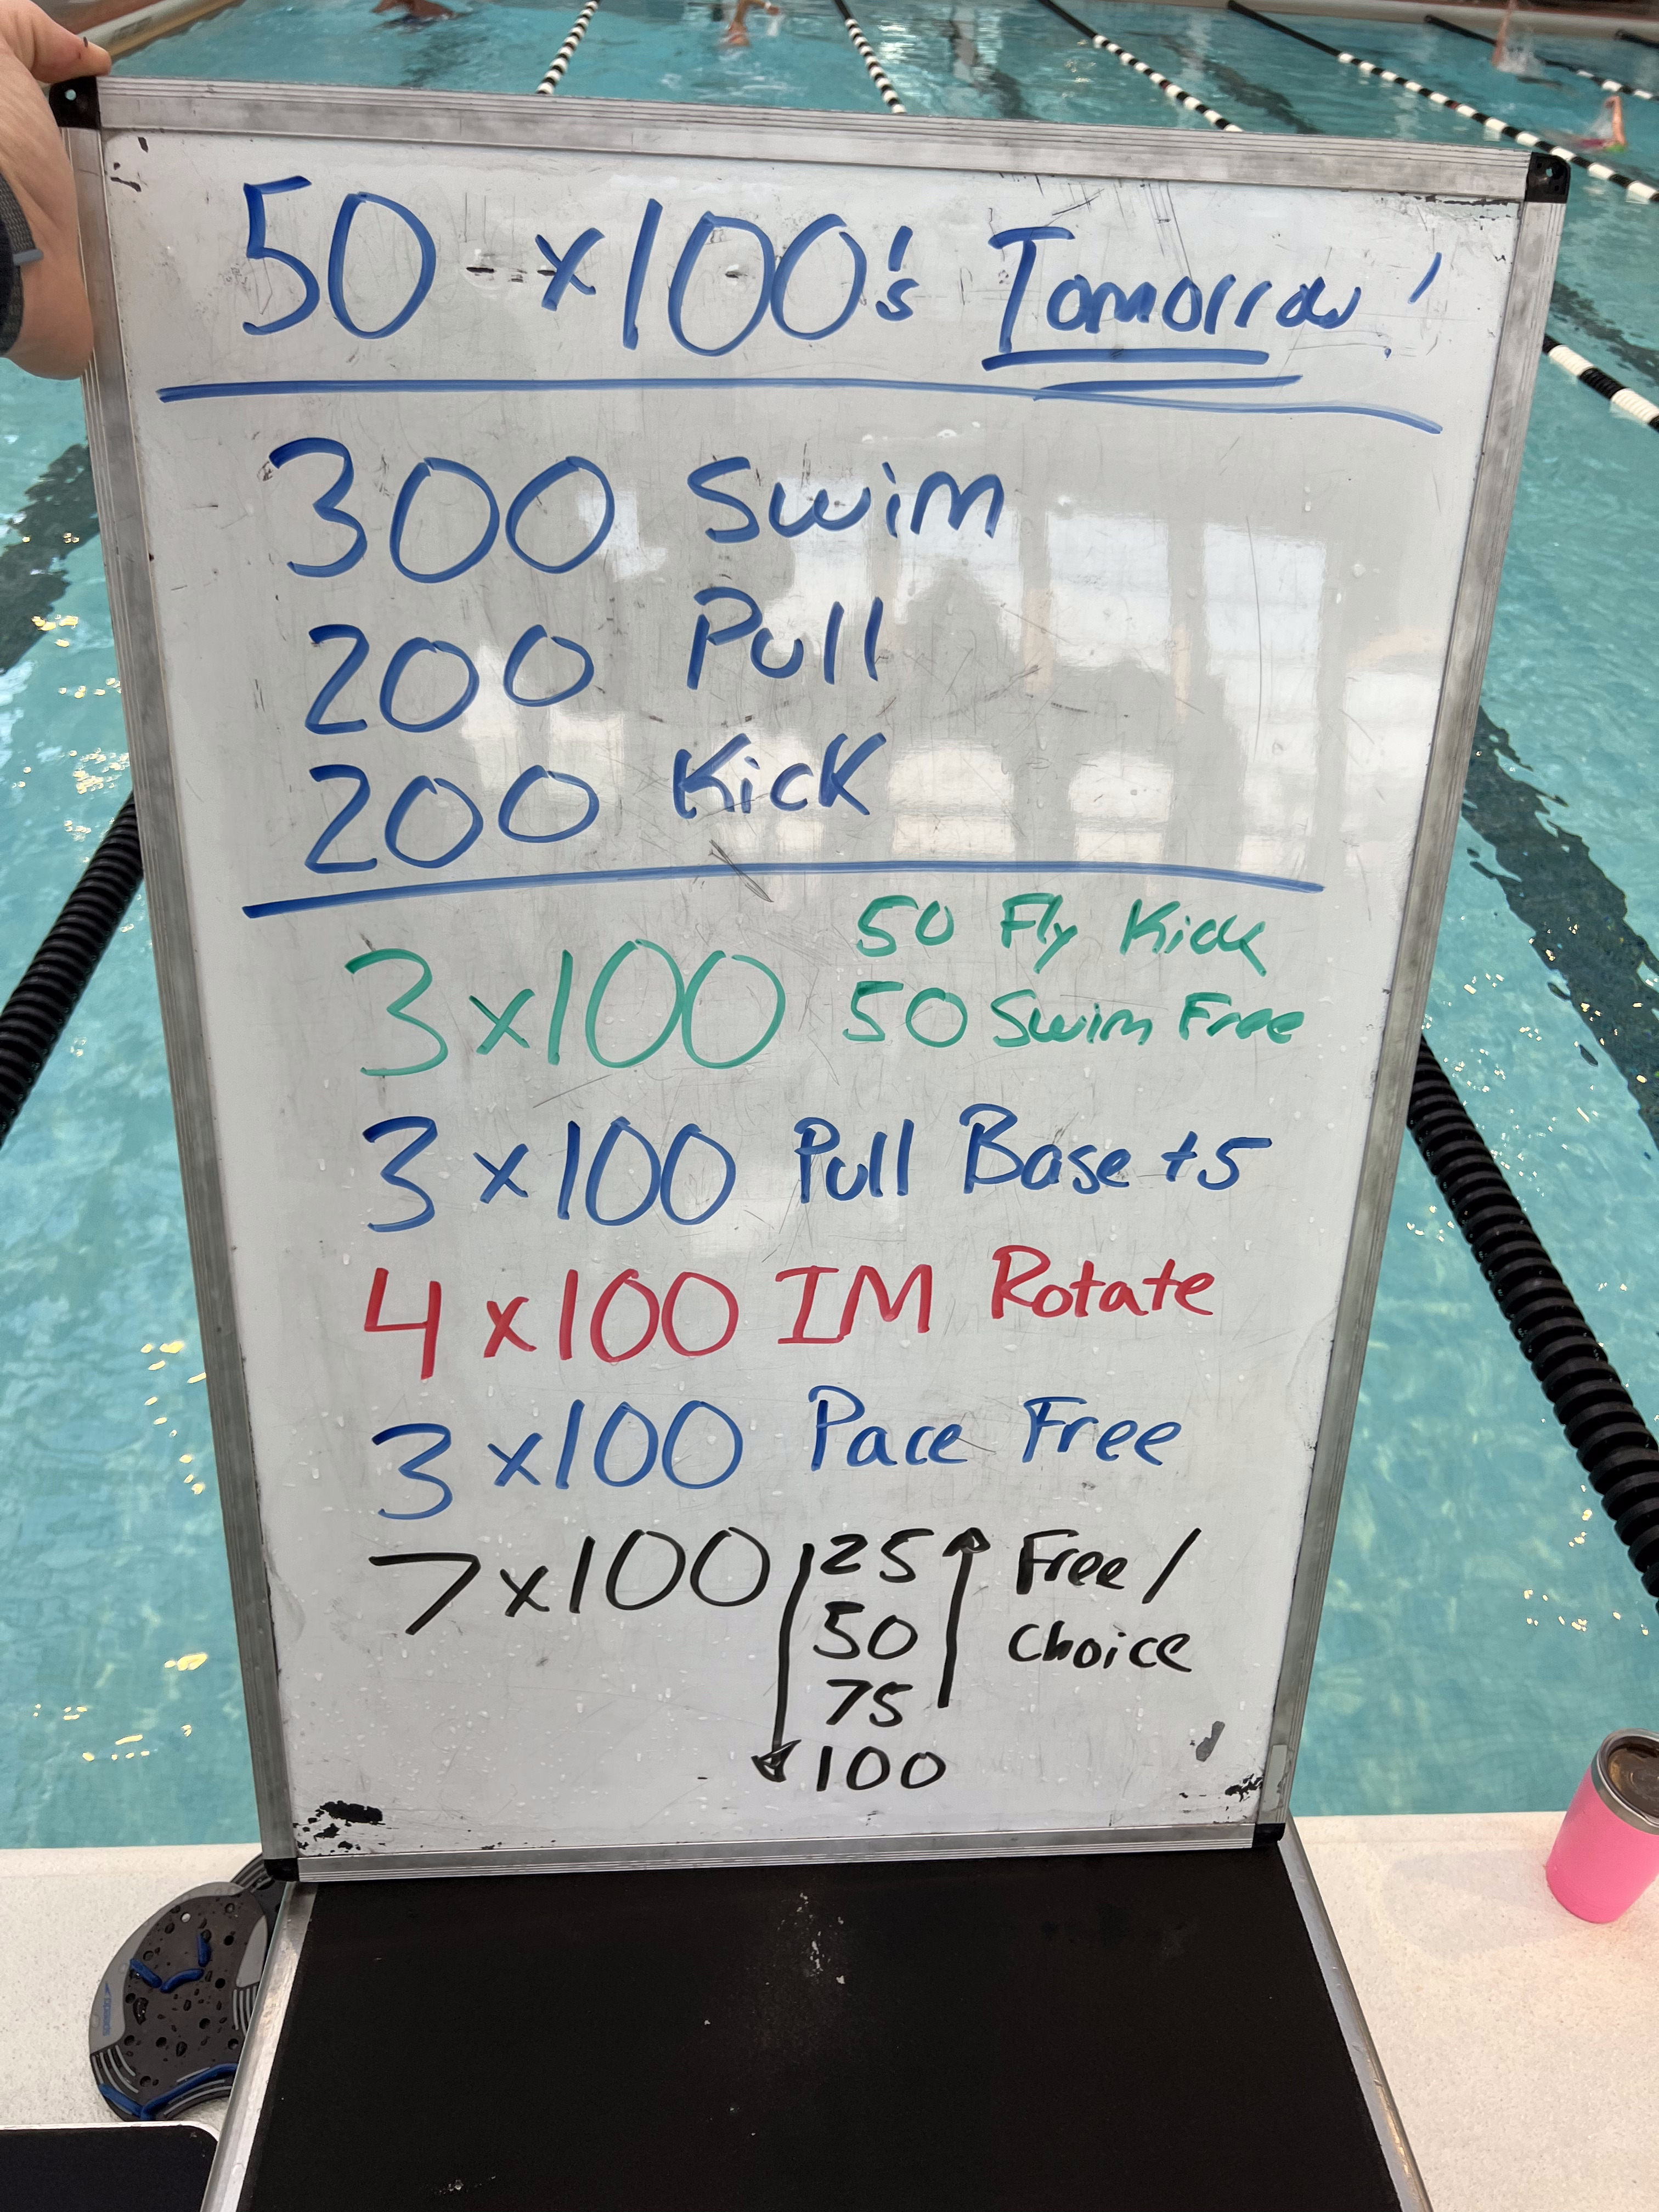 50 x 100's Tomorrow!
300 Swim
200 Pull
200 Kick
3x100 50 Fly Kick
50 Swim Free
3x100 Pull Base +5
4x100 IM Rotate
3x100 Pace Free
7x100 25 Free /
50 Choice
75
100
speedo